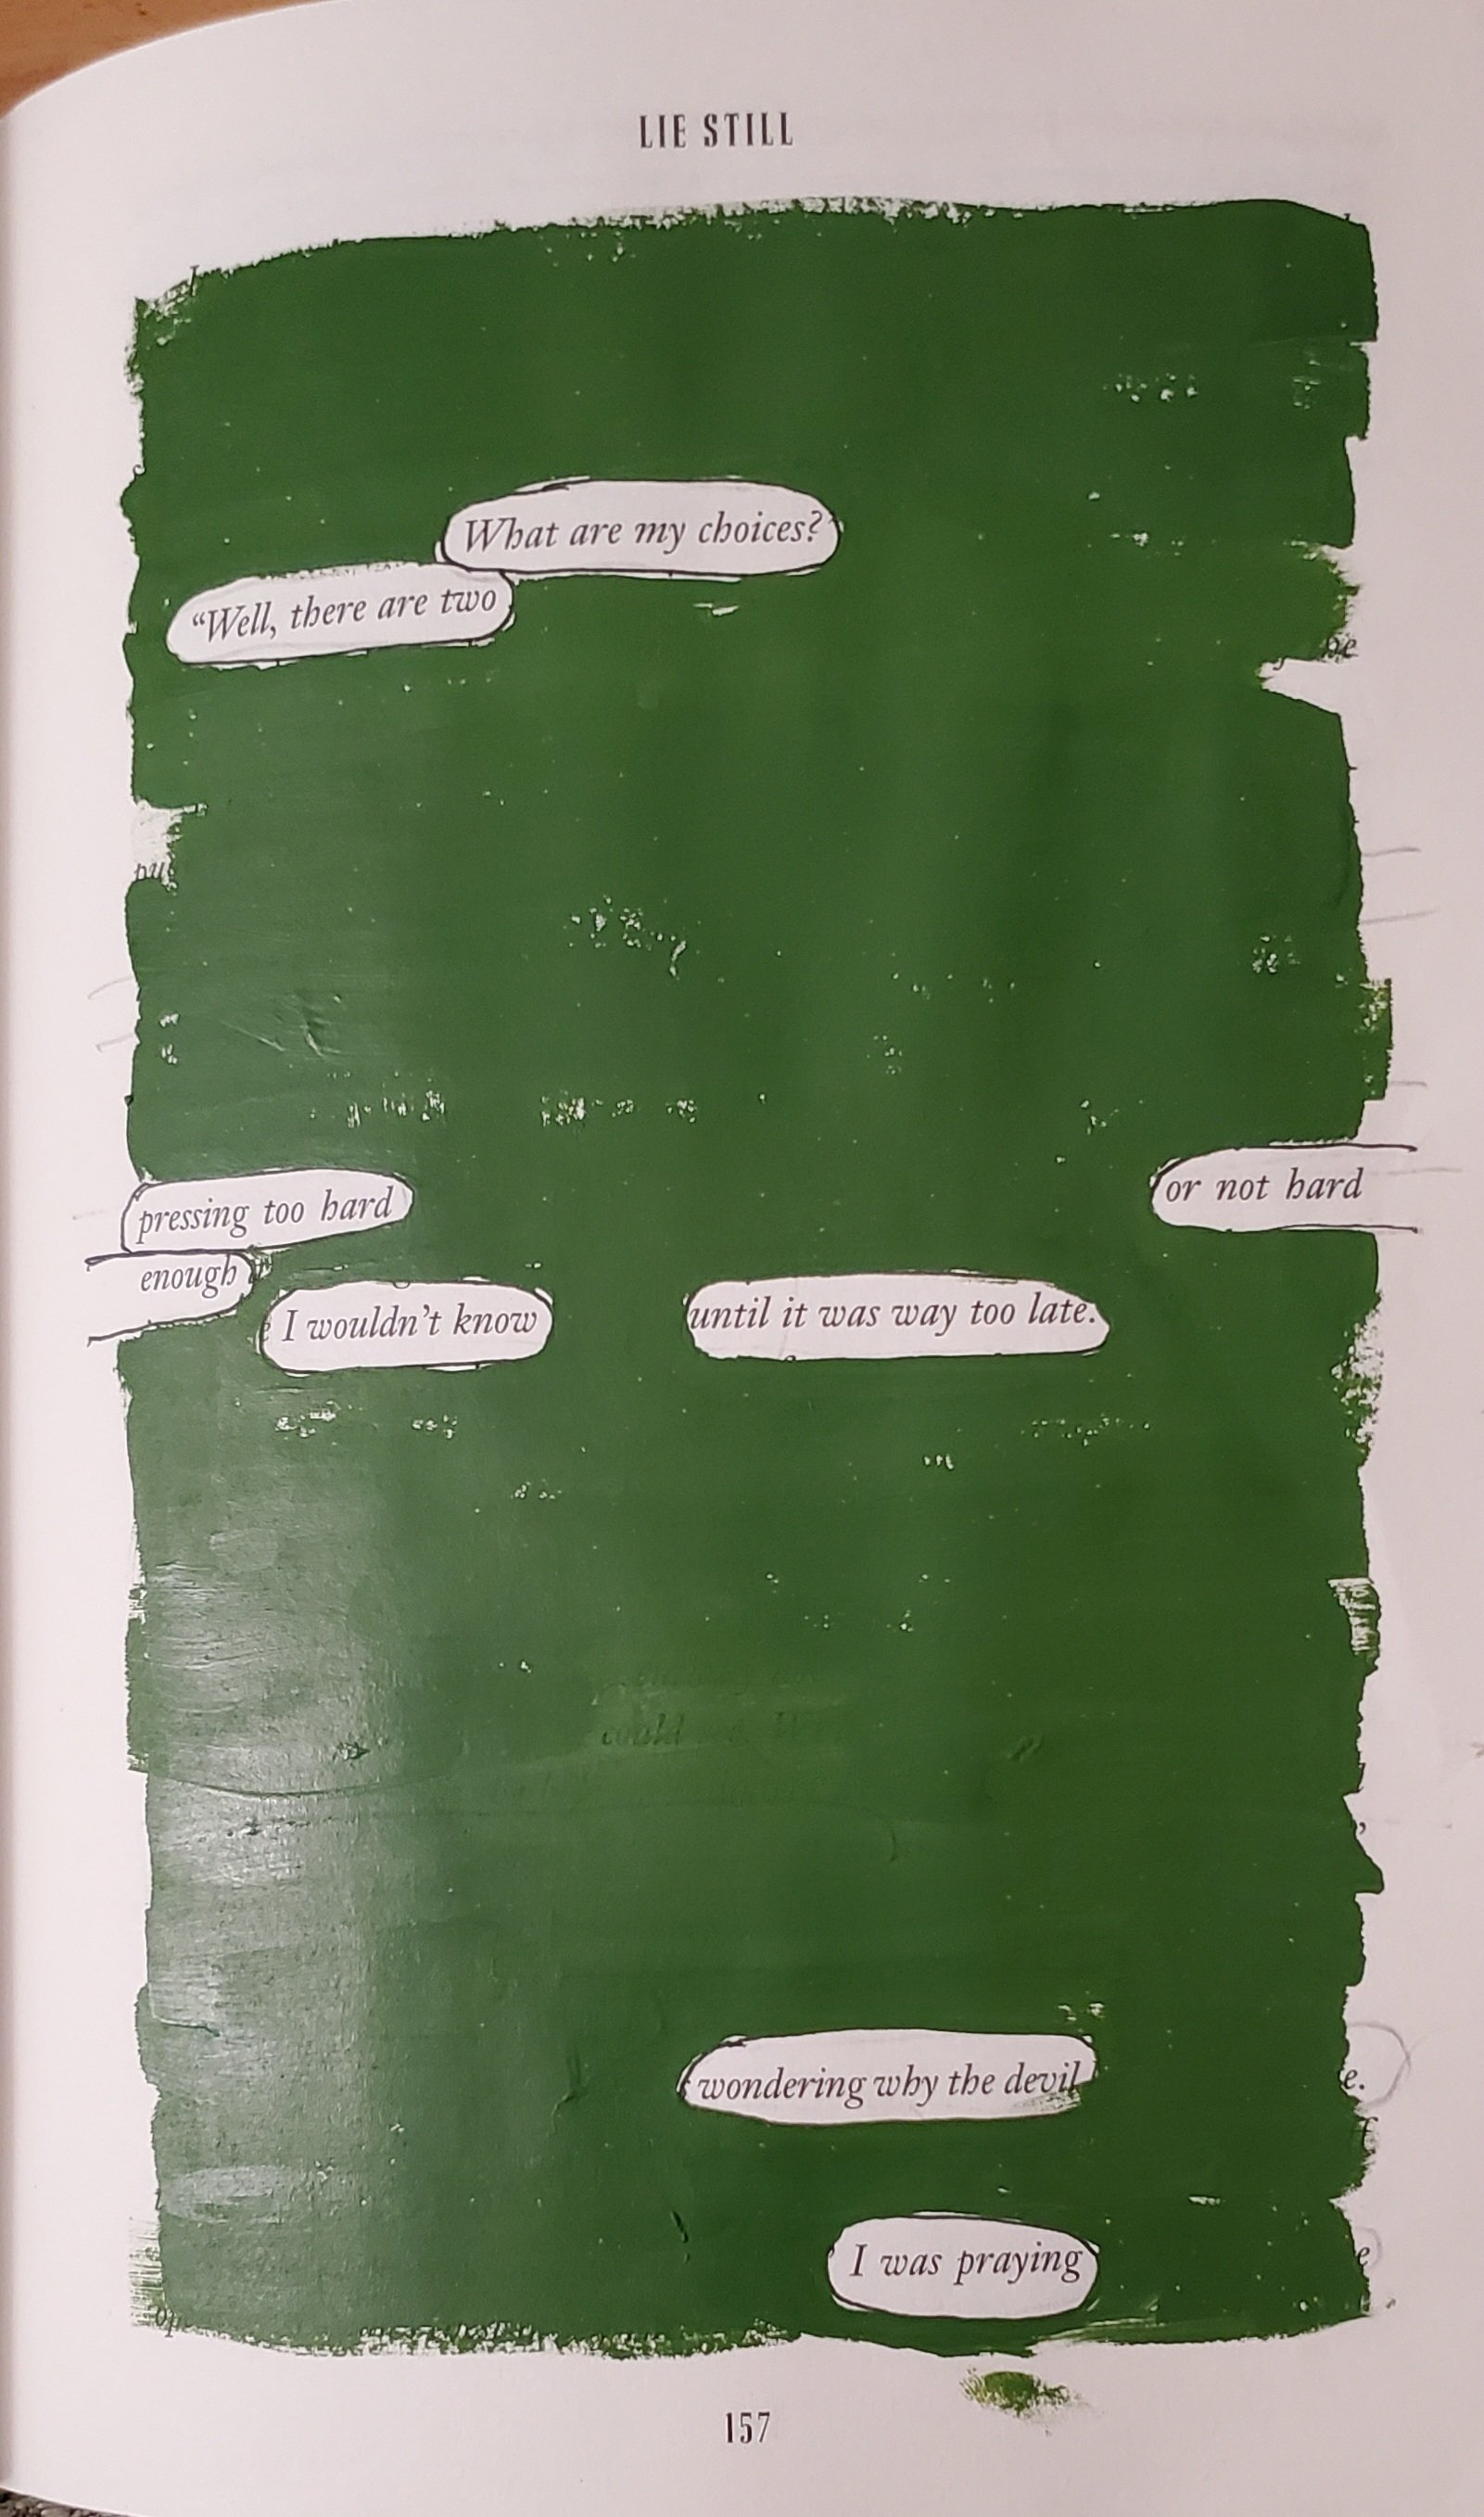 LIE STILL
What are my choices?
“Well, there are two
pressing too hard or not hard
enough
I wouldn’t know until it was way too late.
wondering why the devil
I was praying
157